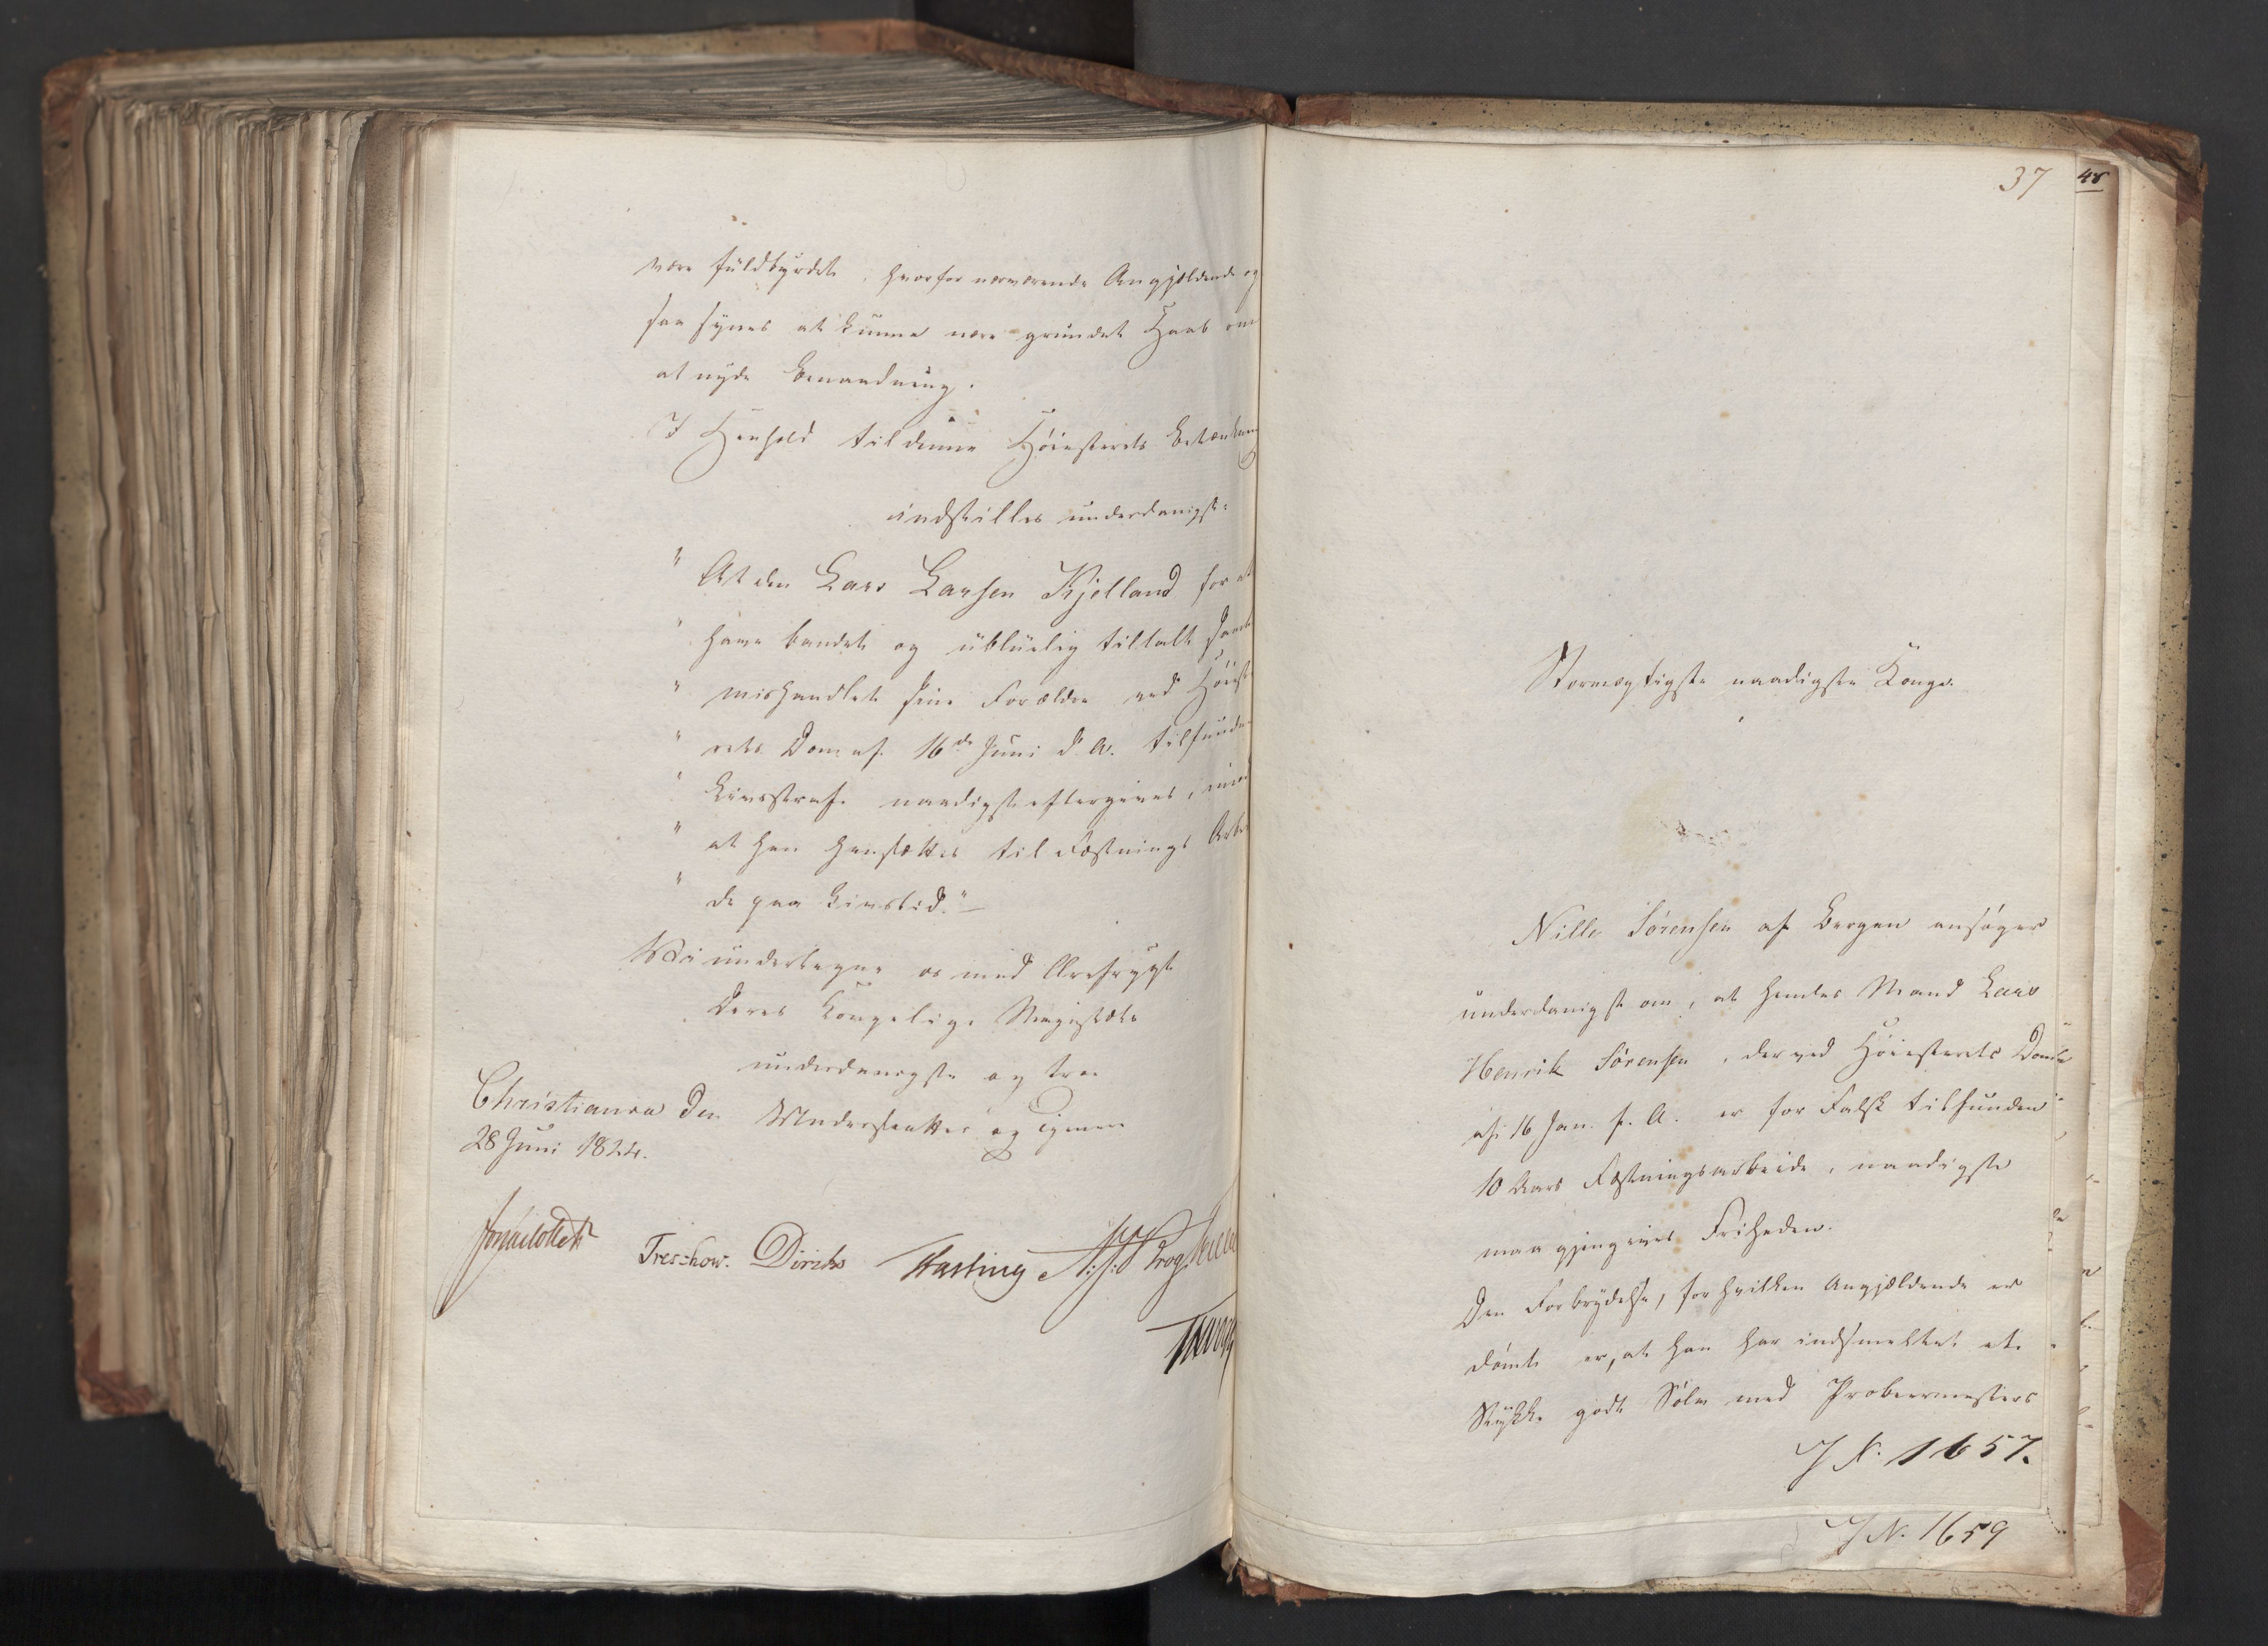 være fuldbyrdet, hvorfor nærværende Angjældende og
saa synes at kunne nære grundet Haab om
at nyde Benaadning.
I Henhold til denne Høiesterets Betænkning
indstilles underdanigst:
" At den Lars Larsen Kjelland for at
" have bandet og ublüelig tiltalt samt
" mishandlet sine Forældre ved Høieste
" rets Dom af 16de Juni d. A. tilfundne
" Livsstraf naadigst eftergives, imod
" at han hensættes til Fæstnings Arbei
" de paa Livstid." —
Vi undertegne os med Ærefrygt
Deres Kongelige Majestæts
underdanigste og troe
Christiania den Undersaatter og Tjenere
28 Juni 1824.
Treschow. Diriks
37
48
Stormægtigste naadigste Konge.
Nille Sørensen af Bergen ansøger
underdanigst om, at hendes Mand Lars
Henrik Sørensen, der ved Høiesterets Dom
af 16 Jan. f. A. er for Falsk tilfunden
10 Aars Fæstningsarbeide, naadigste
maa gjengives Friheden.
Den Forbrydelse, for hvilken Angjældende er
dømt er, at han har indsmeltet et
Stykke godt Sølv med Probeermesters
J N. 1657.
J N. 1659